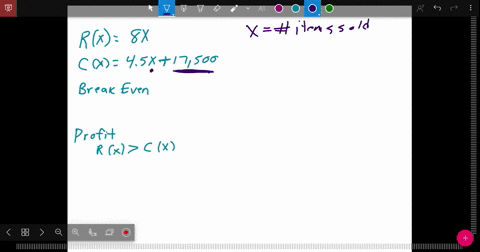 R(x) = 8x
x = # items sold
C(x) = 4.5x + 17,500
Break Even
Profit
R(x) > C(x)